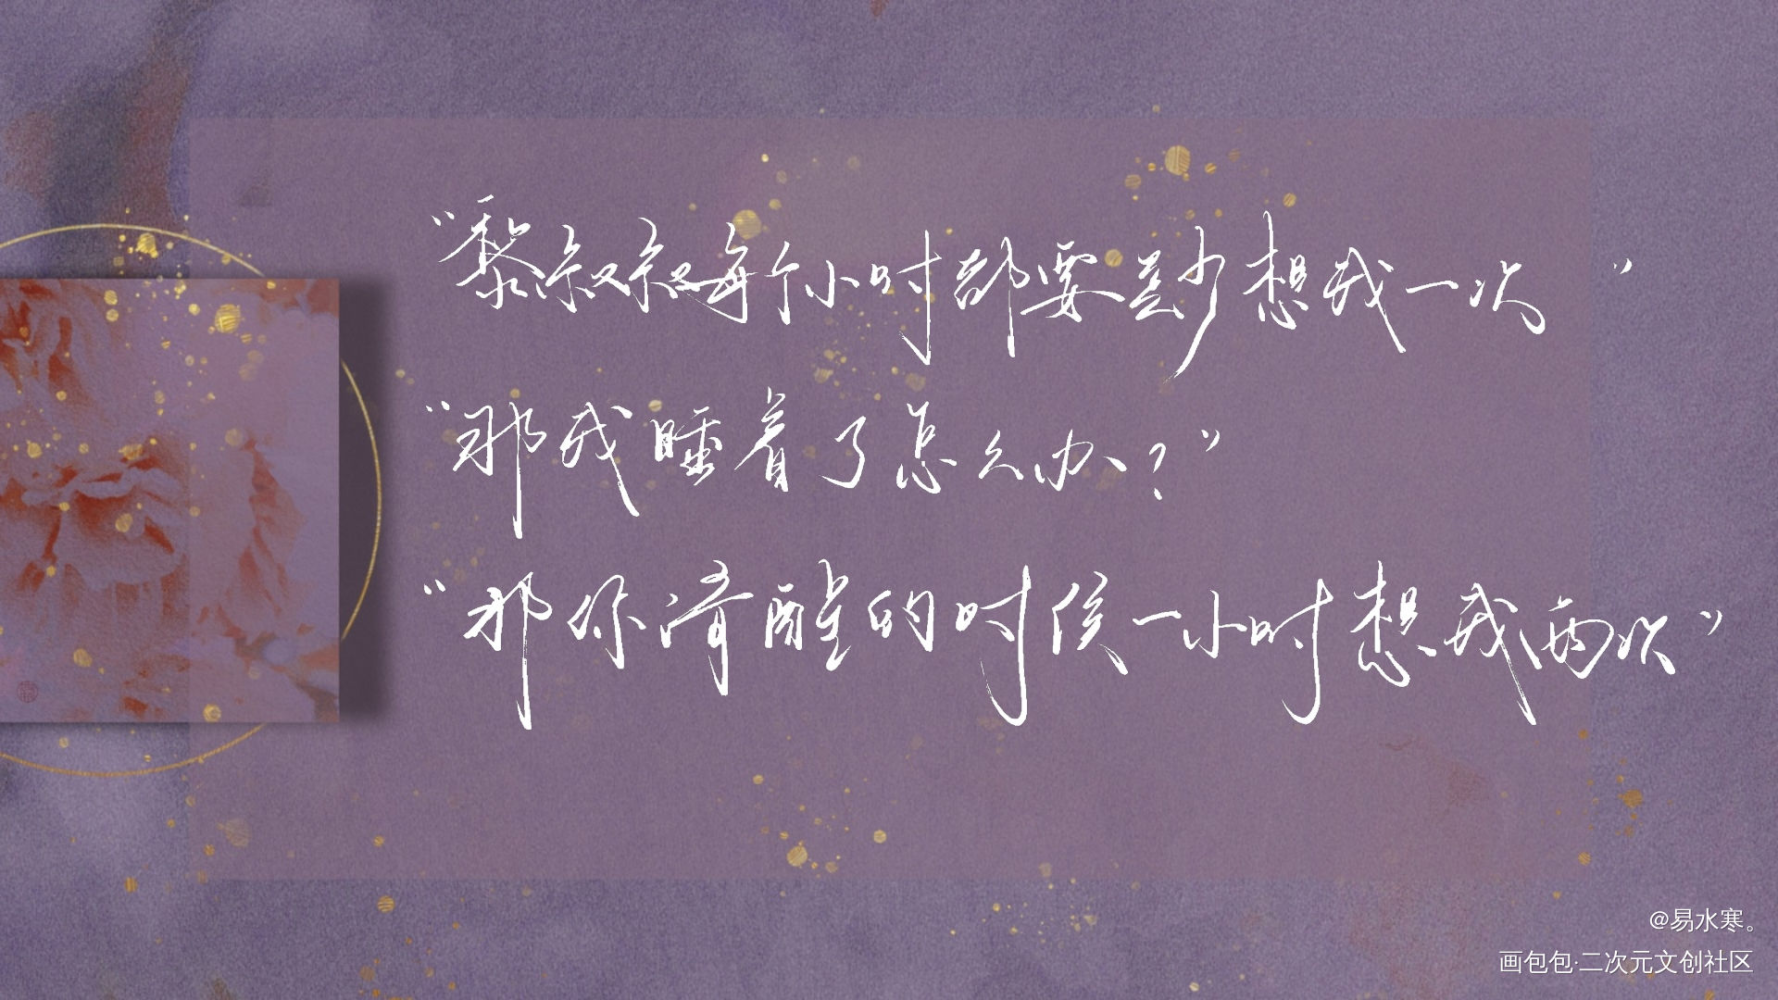 “黎叔叔每个小时都要 想我一次 ”
“那我睡着了怎么办？”
“那你清醒的时候一小时想我两次”
@易水寒。
画包包·二次元文创社区